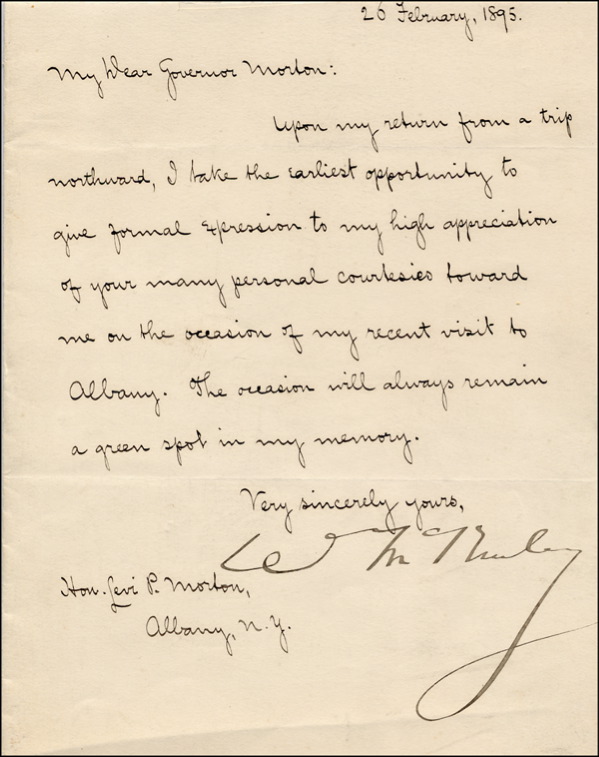 26 February, 1895.
My Dear Governor Morton:
Upon my return from a trip
northward, I take the earliest opportunity to
give formal expression to my high appreciation
of your many personal courtesies toward
me on the occasion of my recent visit to
Albany. The occasion will always remain
a green spot in my memory.
Very sincerely yours,
W McKinley
Hon. Levi P. Morton,
Albany, N.Y.